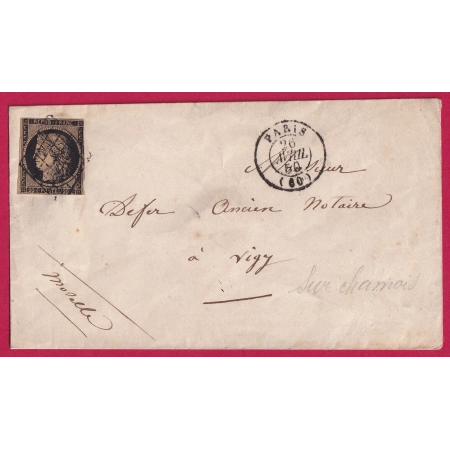 REPUB FRANC
PARIS
26
AVRIL
50
(60)
Monsieur
Defer Ancien Notaire
à Vigy
Moselle
sur chamois